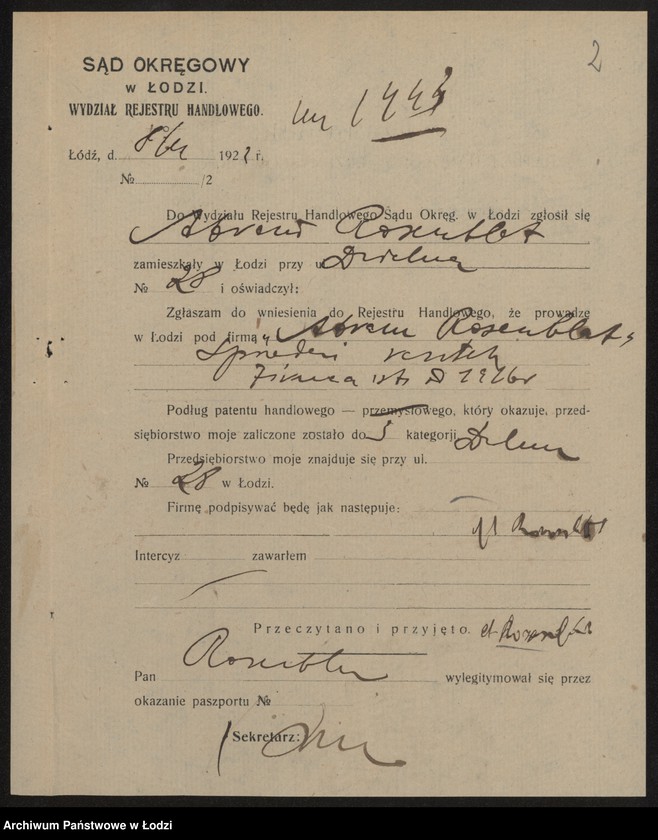 2
SĄD OKRĘGOWY
w ŁODZI.
WYDZIAŁ REJESTRU HANDLOWEGO.
Łódź, d. 192 r.
№ /2
Do Wydziału Rejestru Handlowego Sądu Okręg. w Łodzi zgłosił się
Abram Rosenblat
zamieszkały w Łodzi przy ul. Dzielna
№ 28 i oświadczył:
Zgłaszam do wniesienia do Rejestru Handlowego, że prowadzę
w Łodzi pod firmą „Abram Rosenblat"
Sprzedaż resztek
Firma istn. 1916r
Podług patentu handlowego — przemysłowego, który okazuje, przed-
siębiorstwo moje zaliczone zostało do kategorji
Przedsiębiorstwo moje znajduje się przy ul. Dzielna
№ 28 w Łodzi.
Firmę podpisywać będę jak następuje:
Intercyz zawarłem
Przeczytano i przyjęto.
Pan Rosenblat wylegitymował się przez
okazanie paszportu №
Sekretarz:
Archiwum Państwowe w Łodzi